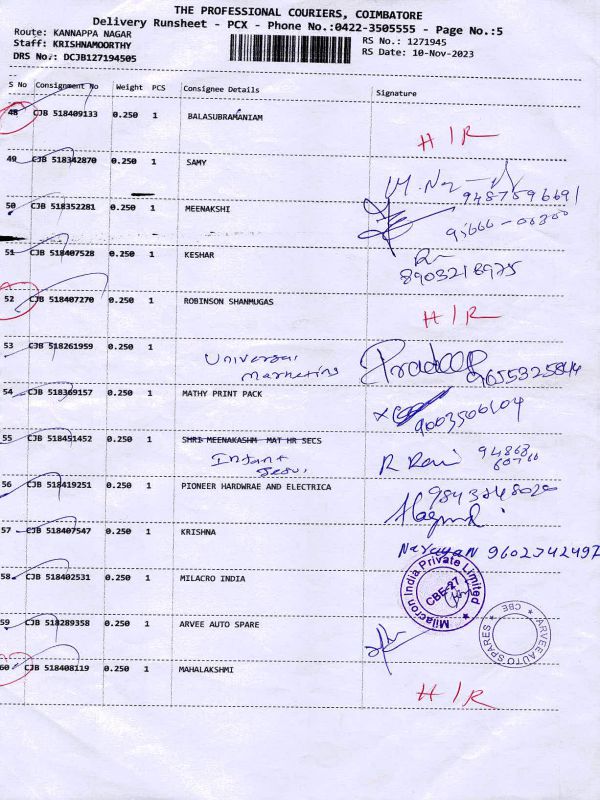 THE PROFESSIONAL COURIERS, COIMBATORE
Delivery Runsheet - PCX - Phone No.:0422-3505555 - Page No.:5
Route: KANNAPPA NAGAR
Staff: KRISHNAMOORTHY
DRS No.: DCJB127194505
RS No.: 1271945
RS Date: 10-Nov-2023
S No Consignment No Weight PCS Consignee Details Signature
48 CJB 518409133 0.250 1 BALASUBRAMANIAM H/R
49 CJB 518342870 0.250 1 SAMY
9487596691
50 CJB 518352281 0.250 1 MEENAKSHI
51 CJB 518407528 0.250 1 KESHAR
8903218975
52 CJB 518407270 0.250 1 ROBINSON SHANMUGAS H/R
53 CJB 518261959 0.250 1
Universal
Marketing
Pradeep
9655325844
54 CJB 518369157 0.250 1 MATHY PRINT PACK
9003506104
55 CJB 518451452 0.250 1 SMRI MEENAKASHM MAT HR SECS
Infant
Jesus,
R Ravi
56 CJB 518419251 0.250 1 PIONEER HARDWRAE AND ELECTRICA
57 CJB 518407547 0.250 1 KRISHNA
Narayan 9602742497
58 CJB 518402531 0.250 1 MILACRO INDIA
Milacron India Private Limited
CBE-27
59 CJB 518289358 0.250 1 ARVEE AUTO SPARE
ARVEE AUTO SPARES
CBE
60 CJB 518408119 0.250 1 MAHALAKSHMI
H/R